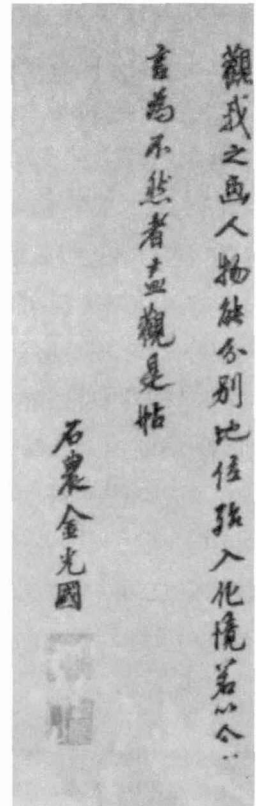 觀我之画人物能分別地位殆入化境若以余
言為不然者盍觀是帖
石農金光國